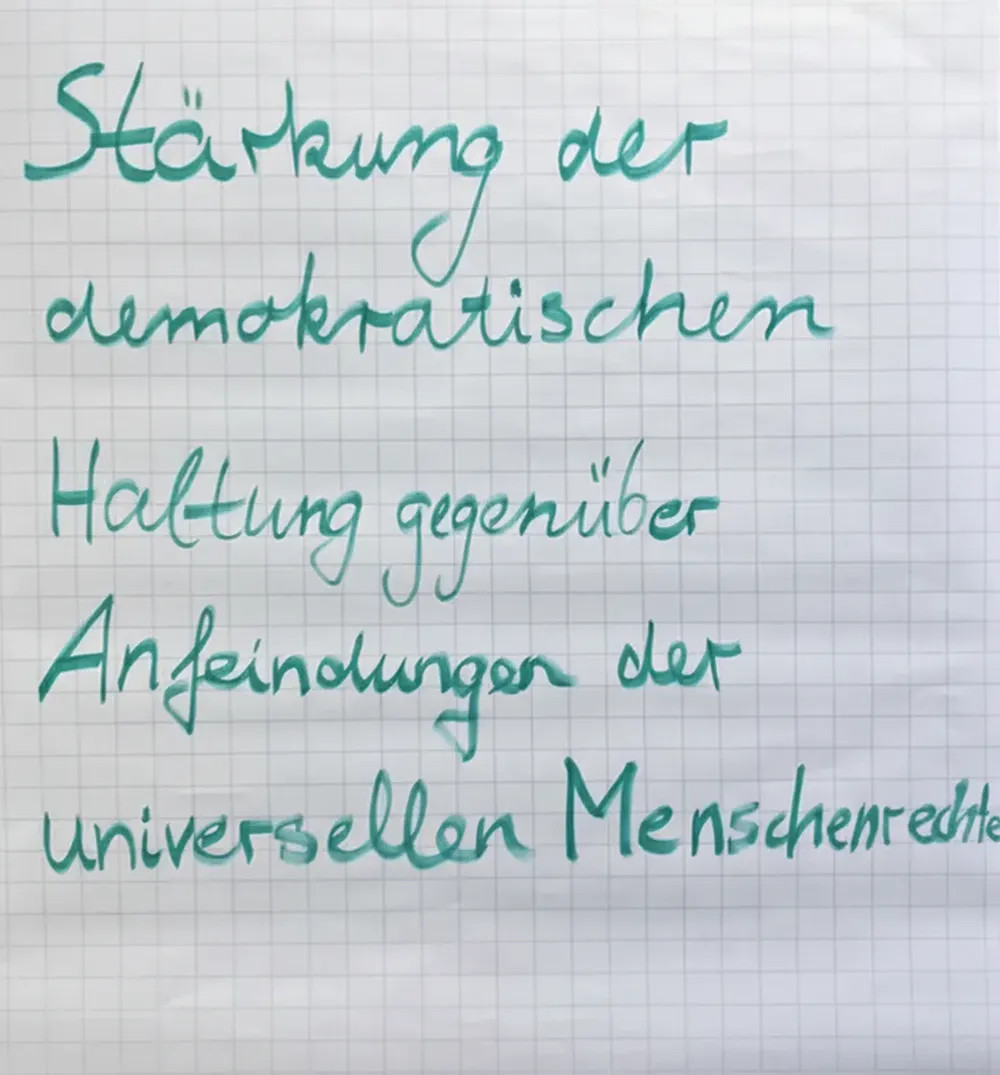 Stärkung der
demokratischen
Haltung gegenüber
Anfeindungen der
universellen Menschenrechte